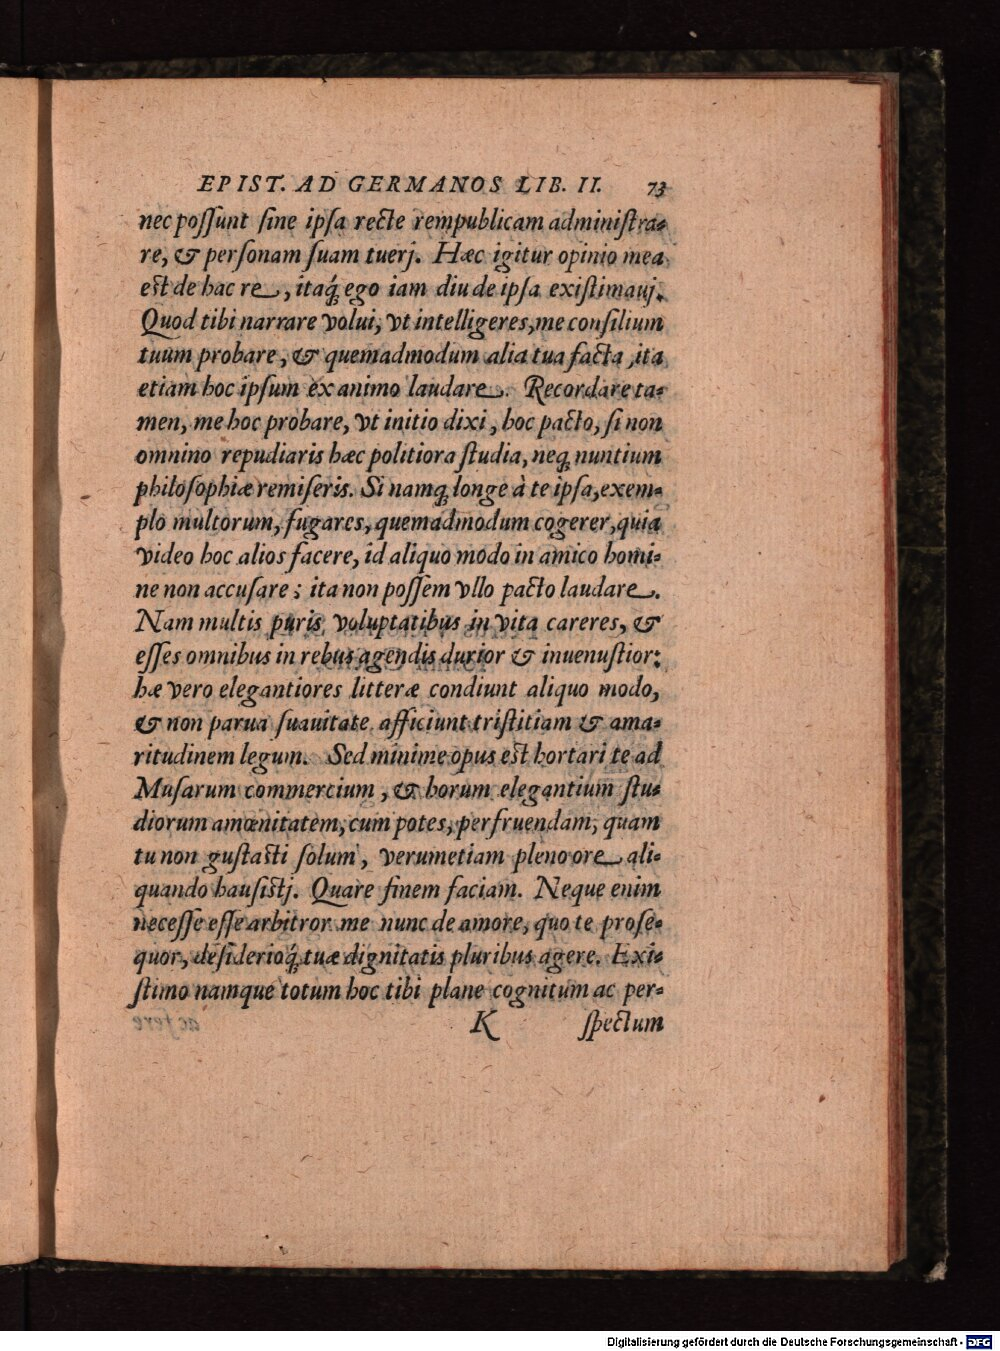 EPIST. AD GERMANOS LIB. II. 73
nec poſſunt ſine ipſa recte rempublicam adminiſtra-
re, & perſonam ſuam tuerj. Hæc igitur opinio mea
est de hac re, itaq́ꝫ ego iam diu de ipſa exiſtimauj.
Quod tibi narrare volui, vt intelligeres, me conſilium
tuum probare, & quemadmodum alia tua facta, ita
etiam hoc ipſum ex animo laudare. Recordare ta-
men, me hoc probare, vt initio dixi, hoc pacto, ſi non
omnino repudiaris hæc politiora ſtudia, neqꝫ nuntium
philoſophiæ remiſeris. Si namqꝫ longe à te ipſa, exem-
plo multorum, fugares, quemadmodum cogerer, quia
video hoc alios facere, id aliquo modo in amico homi-
ne non accuſare; ita non poſſem vllo pacto laudare.
Nam multis puris voluptatibus in vita careres, &
eſſes omnibus in rebus agendis durior & inuenuſtior:
hæ vero elegantiores litteræ condiunt aliquo modo,
& non parua ſuauitate afficiunt triſtitiam & ama-
ritudinem legum. Sed minime opus est hortari te ad
Muſarum commercium, & horum elegantium ſtu-
diorum amœnitatem, cum potes, perfruendam, quam
tu non guſtasti ſolum, verumetiam pleno ore ali-
quando hauſistj. Quare finem faciam. Neque enim
neceſſe eſſe arbitror me nunc de amore, quo te proſe-
quor, deſiderioq́ꝫ tuæ dignitatis pluribus agere. Exi-
ſtimo namque totum hoc tibi plane cognitum ac per-
K ſpectum
ac fere
Digitalisierung gefördert durch die Deutsche Forschungsgemeinschaft - DFG